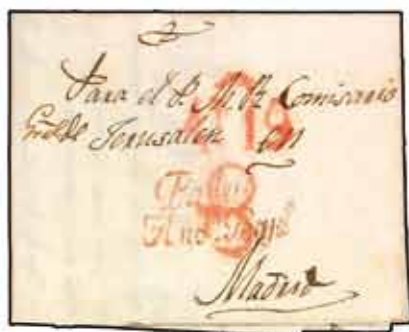 Para el P. M. R. Comisario
Gral. de Jerusalén en
19
Madrid